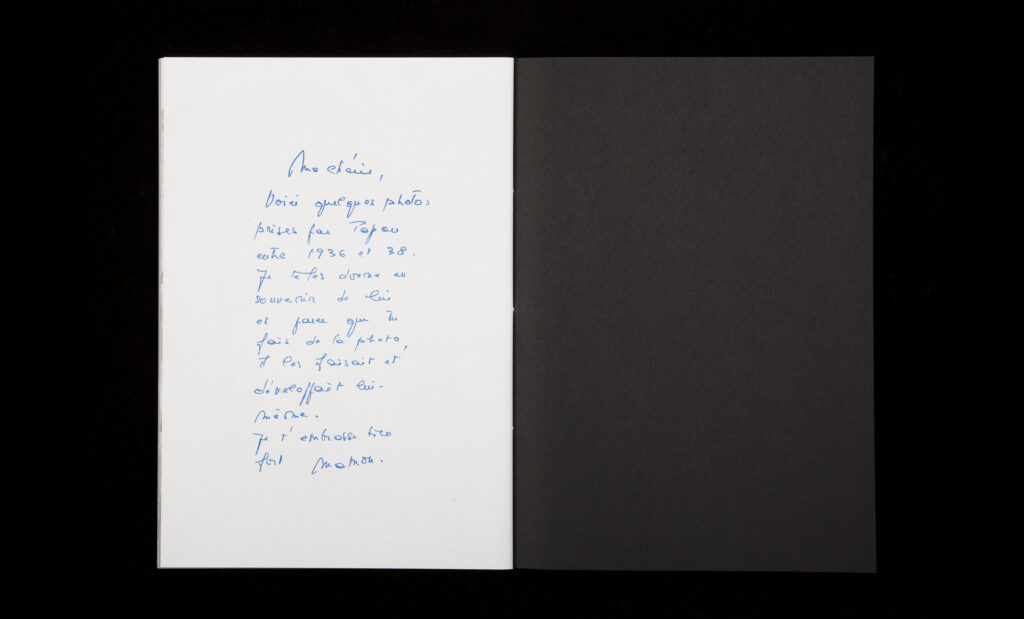 Ma chérie,
Voici quelques photos
prises par Papou
entre 1936 et 38.
Je te les donne en
souvenir de lui
et parce que tu
fais de la photo,
Il les faisait et
développait lui-
même.
Je t'embrasse bien
fort